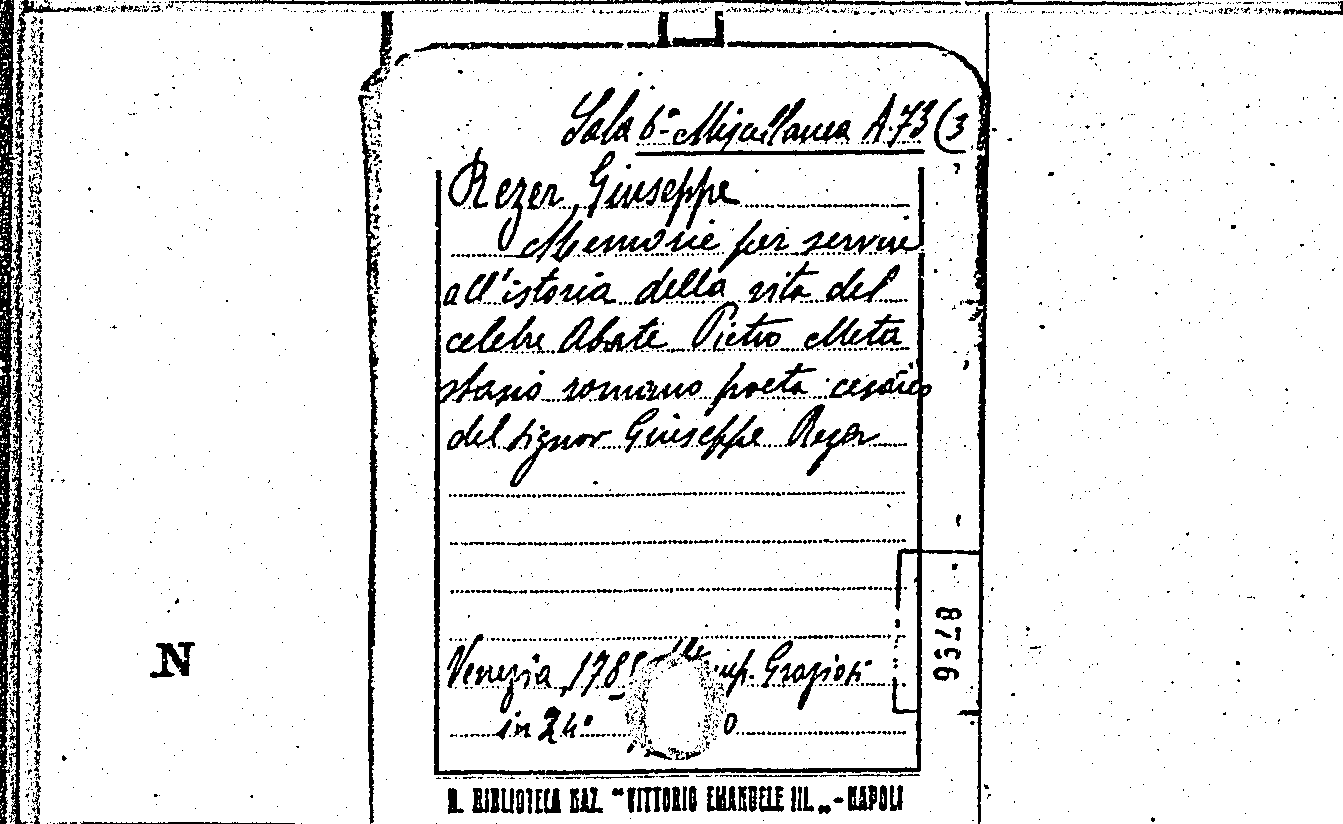 Sala 6ª Miscellanea A.73 (3
Rezer, Giuseppe
Memorie per servire
all'istoria della vita del
celebre Abate Pietro Meta
stasio romano poeta cesareo
del signor Giuseppe Rezer
Venezia, 178 Grazioli
in 24°
N
9578
R. BIBLIOTECA NAZ. "VITTORIO EMANUELE III." - NAPOLI